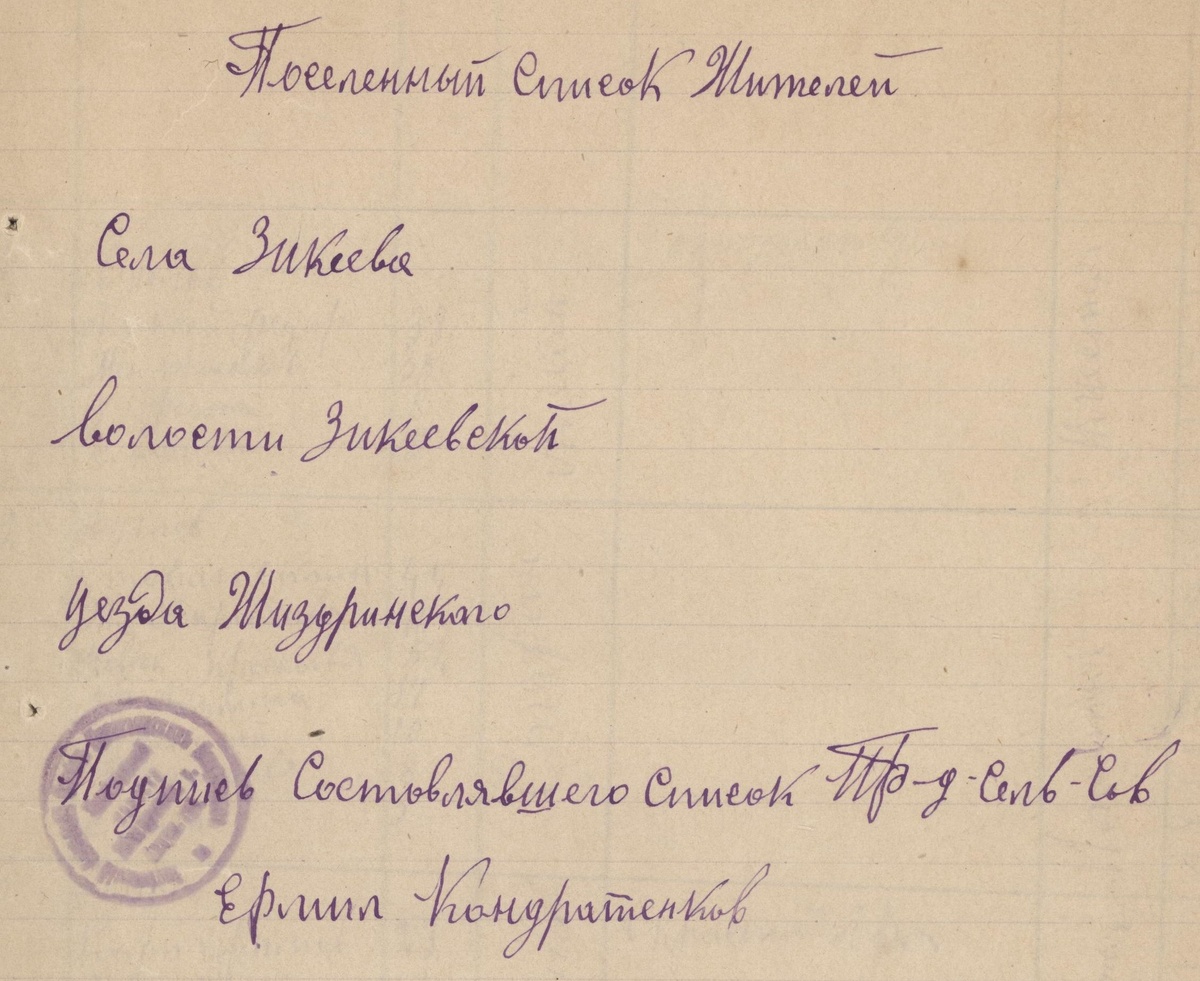 Поселенный Список Жителей
Села Зикеева
волости Зикеевской
уезда Жиздринского
Подпись Состовлявшего Список Пр-д-Сель-Сов
Ермил Кондратенков